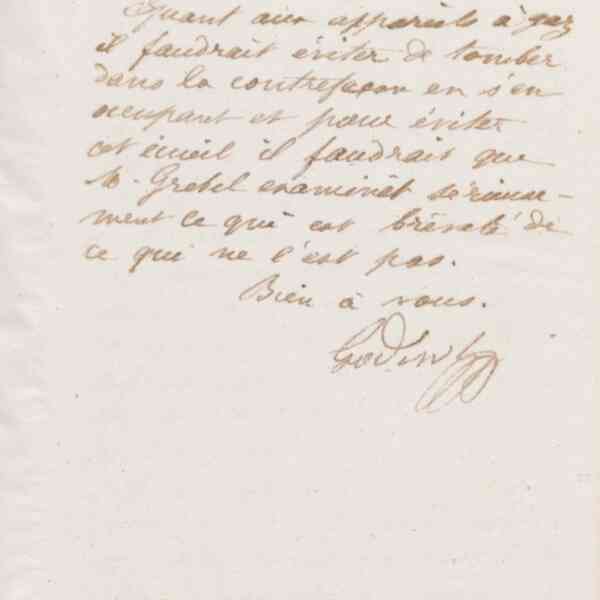 Quant aux appareils à gaz
il faudrait éviter de tomber
dans la contrefaçon en s'en
occupant et pour éviter
cet écueil il faudrait que
M. Grebel examinât sérieuse-
ment ce qui est breveté de
ce qui ne l'est pas.
Bien à vous.
Godin